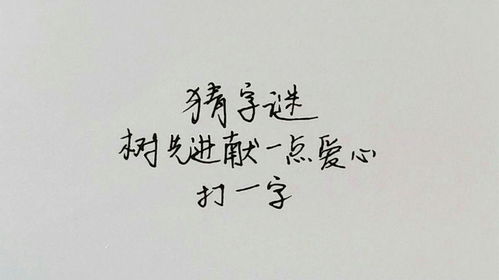 猜字谜
树先进献一点爱心
打一字